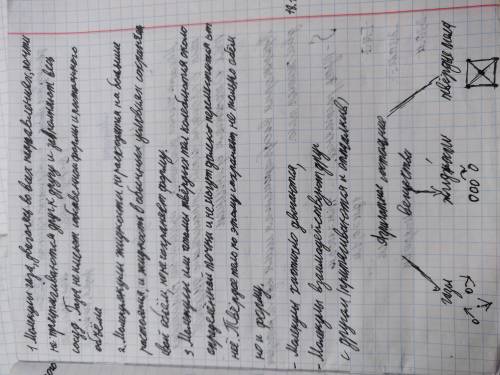 1. Молекулы газа, двигаясь во всех направлениях, почти
не притягиваются друг к другу и заполняют весь
сосуд. Газы не имеют собственной формы и постоянного
объёма
2. Молекулы жидкости не расходятся на большие
расстояния и жидкость в обычных условиях сохраняет
свой объём, но не сохраняет форму.
3. Молекулы или атомы твёрдых тел колеблются около
определённой точки и не могут далеко переместится от
неё. Твёрдое тело по этому сохраняет не только объём
но и форму.
- Молекулы хаотично двигаются,
- Молекулы взаимодействуют друг
с другом (притягиваются и отталкив)
Агрегатные состояния
вещества
газы жидкости твёрдые тела